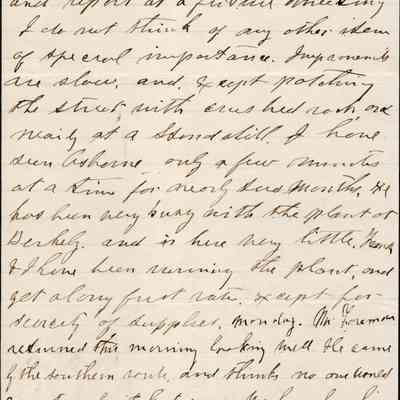 and report at a future meeting
I do not think of any other item
of special importance. Improvements
are slow, and, except patching
the street with crushed rock, are
nearly at a stand still. I have
seen Osborne only a few minutes
at a time for nearly two months. He
has been very busy with the plant at
Berkely. and is here very little. Frank
& I have been running the plant, and
get along first rate, except for
scarcity of supplies. Monday. Mr Foreman
returned this morning looking well. He came
by the southern route, and thinks no one would